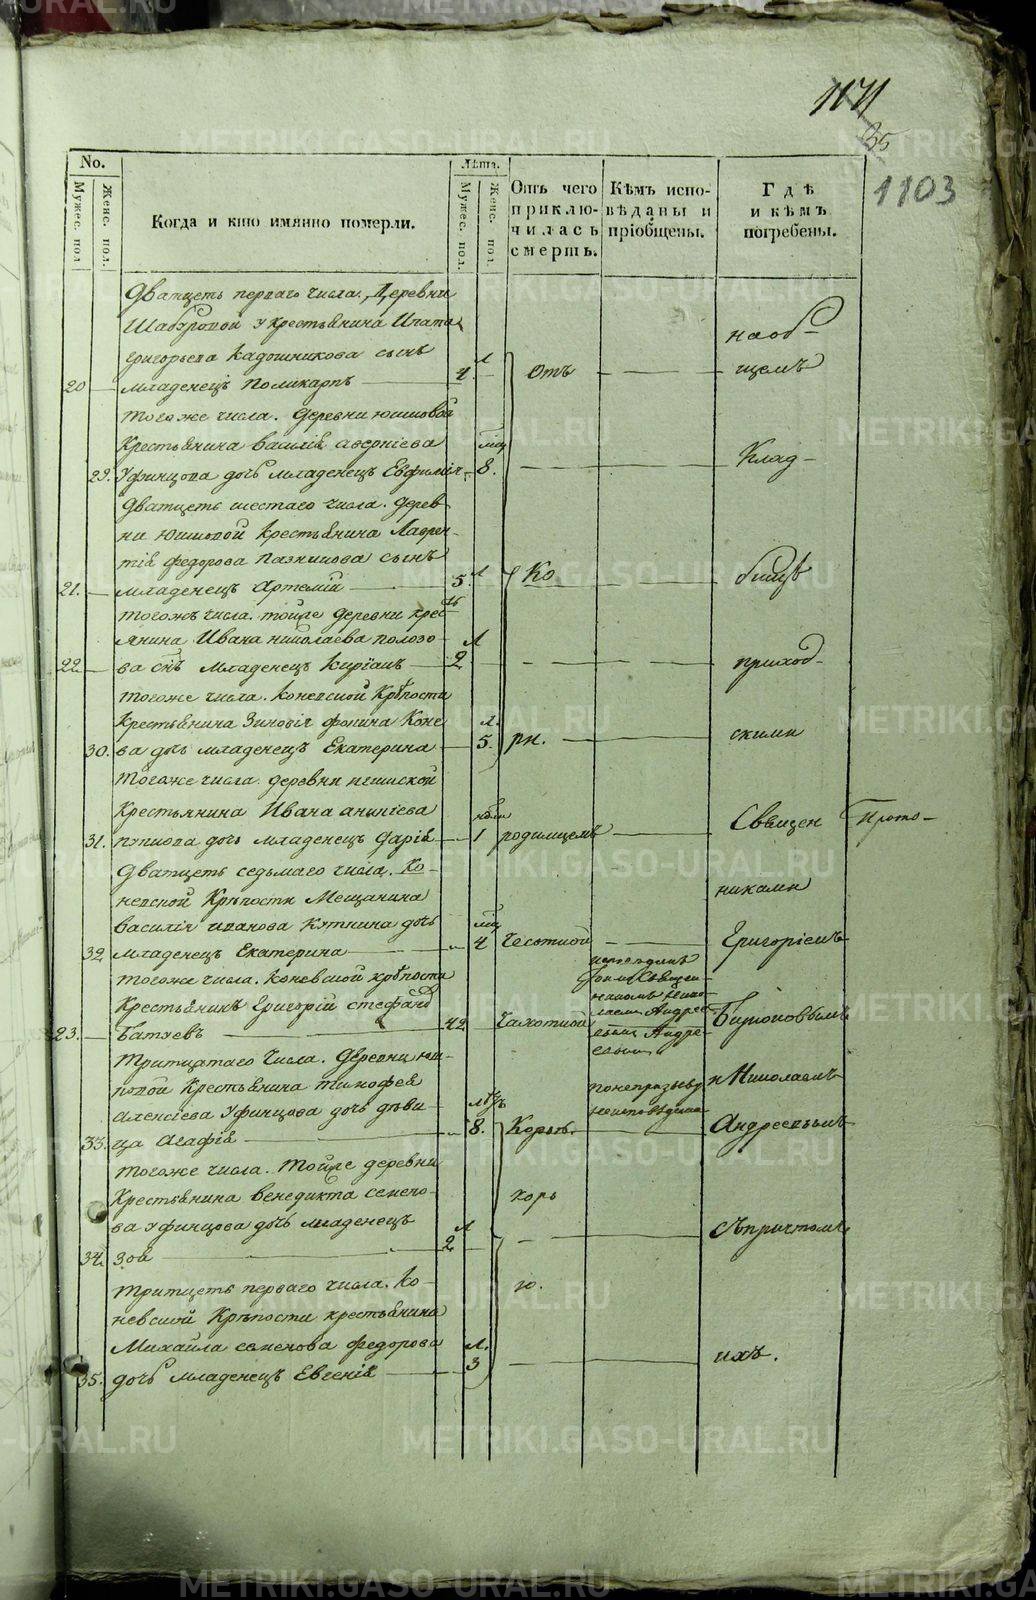 1171
35
1103
No.
Мужес. пол.
Женс. пол.
Когда и кто имянно померли.
Лѣта.
Мужес. пол.
Женс. пол.
Отъ чего приклю-чилась смерть.
Кѣмъ испо-вѣданы и пріобщены.
Гдѣ и кѣмъ погребены.
Дватцеть перваго числа. Деревни
Шабуровой у крестьянина Ипата
Григорьева Кадошникова сынъ
20 — младенецъ Поликарпъ — 4. л — Отъ — наоб-щемъ
Тогоже числа. деревни Юшковой
Крестьянина Василія Аверкіева
29. Уфинцова дочь младенецъ Евфимія — мца 8. — Клад-
Дватцеть шестаго числа. дерев-
ни Юшковой Крестьянина Лаврен-
тія Федорова сынъ
21. — младенецъ Артемій — 5. л — Ко — бищѣ
Тогожъ числа. тойже деревни крес-
янина Ивана Николаева Полозо-
22 — ва снъ младенецъ Киріакъ — 2 л — приход-
тогоже числа. Коневской Крѣпости
Крестьянина Зиновія Фокина Коне
30. ва дочь младенецъ Екатерина — л. 5. — ри. — скими
Тогоже числа. деревни
Крестьянина Ивана Ананіева
31. дочь младенецъ Дарія — нѣдли 1 — родимцемъ — Священ Прото-
Дватцеть седьмаго числа. Ко-
невской Крѣпости Мещанина
Василія Иванова дочь
32 младенецъ Екатерина — мца 4 — чесоткой — никами Григоріемъ
тогоже числа. Коневской крѣпости
Крестьянинъ Григорій Стефановъ
23. — Батуевъ — 42. — Чахоткой — Священ-никомъ Андре- — Бирюковымъ
Тритцатаго числа. деревни Юш-
ковой Крестьянина Тимофея
Алексіева Уфинцова дочь дѣви-
33. ца Агафія — лѣтъ 8. — Корью. — неисповѣдана — и Николаемъ Андреевымъ
Тогоже числа. тойже деревни
Крестьянина Венедикта Семено-
ва Уфинцова дочь младенецъ
34. Зоя — л 2 — корь — съпричтомъ
Тритцеть перваго числа. Ко-
невской Крѣпости крестьянина
Михайла Семенова Федорова
35. дочь младенецъ Евгенія — л. 3 — ю. — ихъ.
METRIKI.GASO-URAL.RU